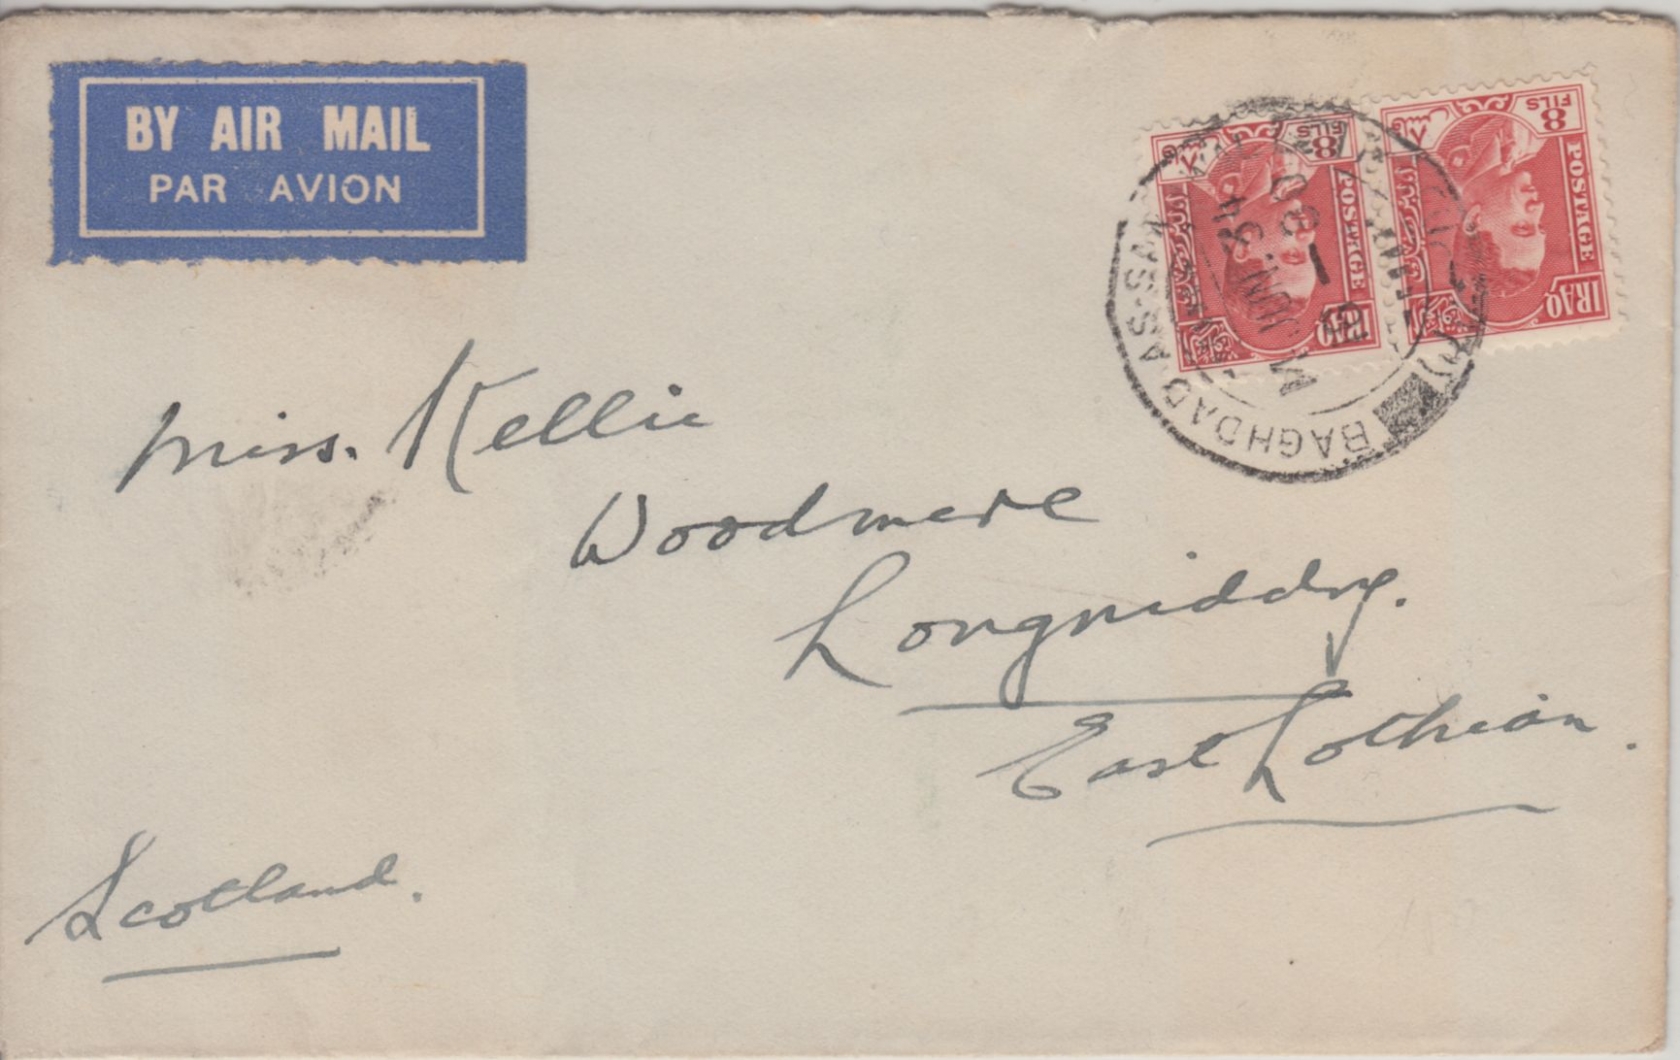 BY AIR MAIL
PAR AVION
8
FILS
POSTAGE
IRAQ
8
FILS
POSTAGE
IRAQ
BAGHDAD AS-SAM
JUN. 34
Miss. Kellie
Woodmere
Longniddry.
East Lothian.
Scotland.